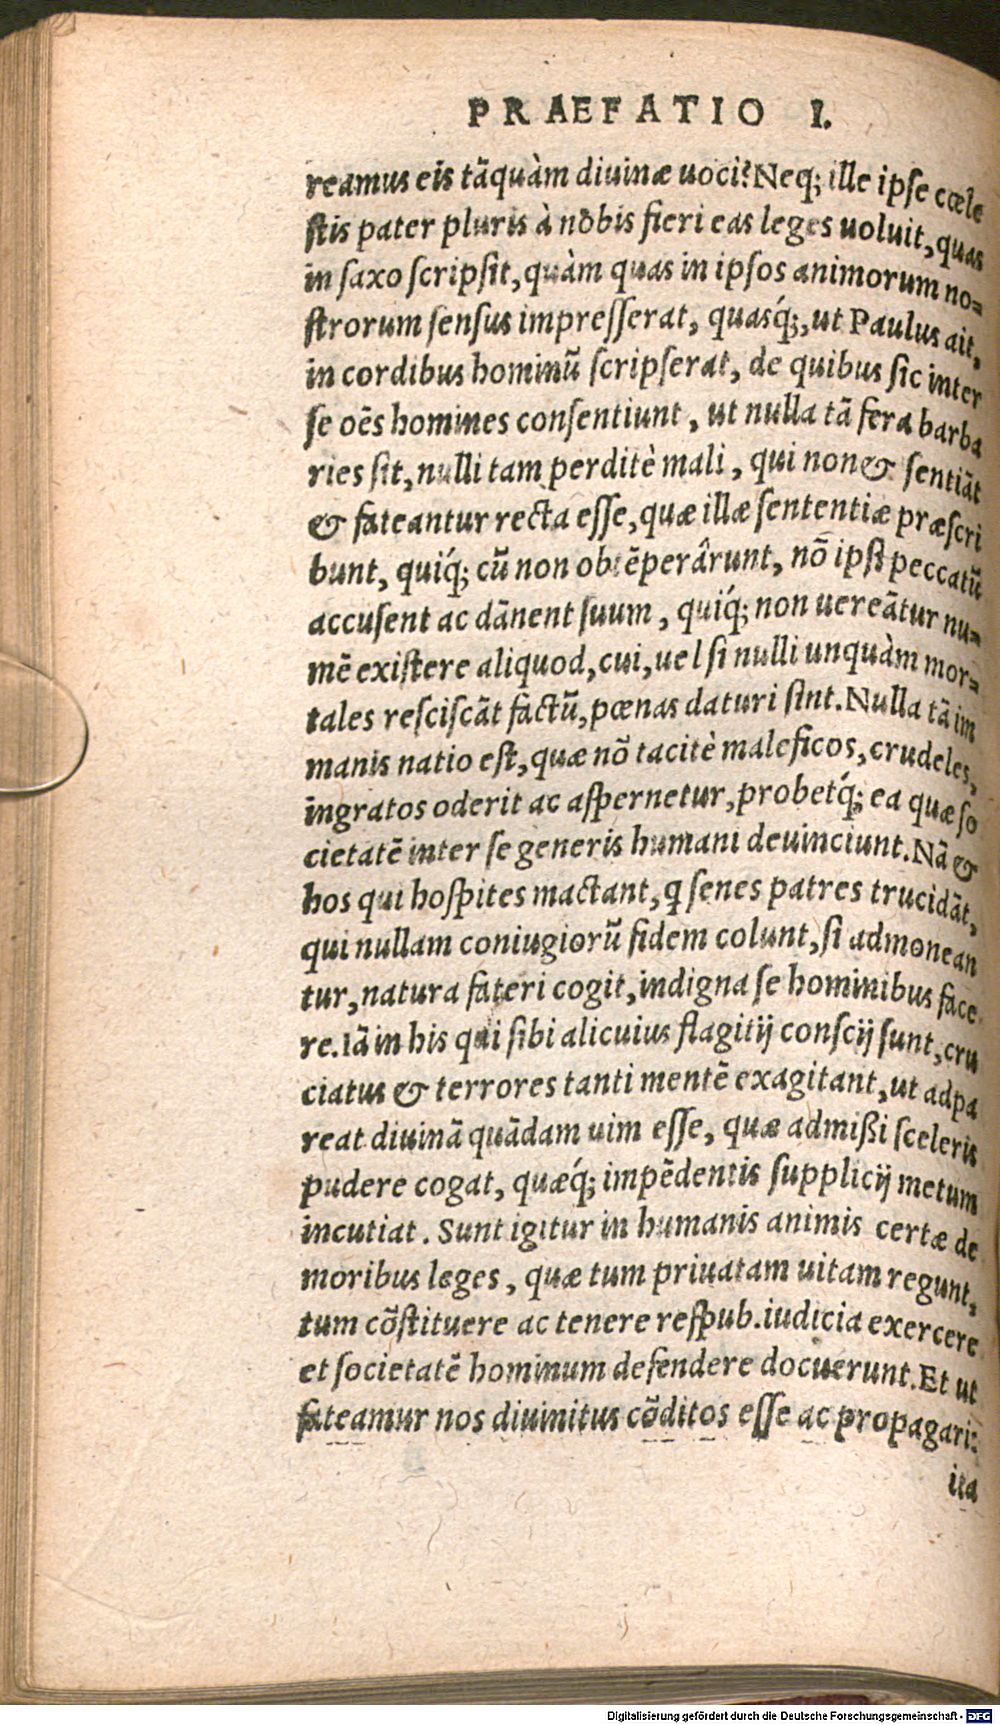 PRAEFATIO I.
reamus eis tãquàm diuinæ uoci? Neq; ille ipse cœle
stis pater pluris à nobis fieri eas leges uoluit, quas
in saxo scripsit, quàm quas in ipsos animorum no=
strorum sensus impresserat, quasq́;, ut Paulus ait,
in cordibus hominũ scripserat, de quibus sic inter
se oẽs homines consentiunt, ut nulla tã fera barba
ries sit, nulli tam perditè mali, qui non & sentiãt
& fateantur recta esse, quæ illæ sententiæ præscri
bunt, quiq́; cũ non obtẽperârunt, nõ ipsi peccatũ
accusent ac dãnent suum, quiq́; non uereãtur nu=
mẽ existere aliquod, cui, uel si nulli unquàm mor=
tales resciscãt factũ, pœnas daturi sint. Nulla tã im
manis natio est, quæ nõ tacitè maleficos, crudeles,
ingratos oderit ac aspernetur, probetq́; ea quæ so
cietatẽ inter se generis humani deuinciunt. Nã &
hos qui hospites mactant, q senes patres trucidãt,
qui nullam coniugiorũ fidem colunt, si admonean
tur, natura fateri cogit, indigna se hominibus face
re. Iã in his qui sibi alicuius flagitij conscij sunt, cru
ciatus & terrores tanti mentẽ exagitant, ut adpa
reat diuinã quãdam uim esse, quæ admißi sceleris
pudere cogat, quæq́; impẽdentis supplicij metum
incutiat. Sunt igitur in humanis animis certæ de
moribus leges, quæ tum priuatam uitam regunt,
tum cõstituere ac tenere respub. iudicia exercere
et societatẽ hominum defendere docuerunt. Et ut
fateamur nos diuinitus cõditos esse ac propagari:
ita
Digitalisierung gefördert durch die Deutsche Forschungsgemeinschaft - DFG